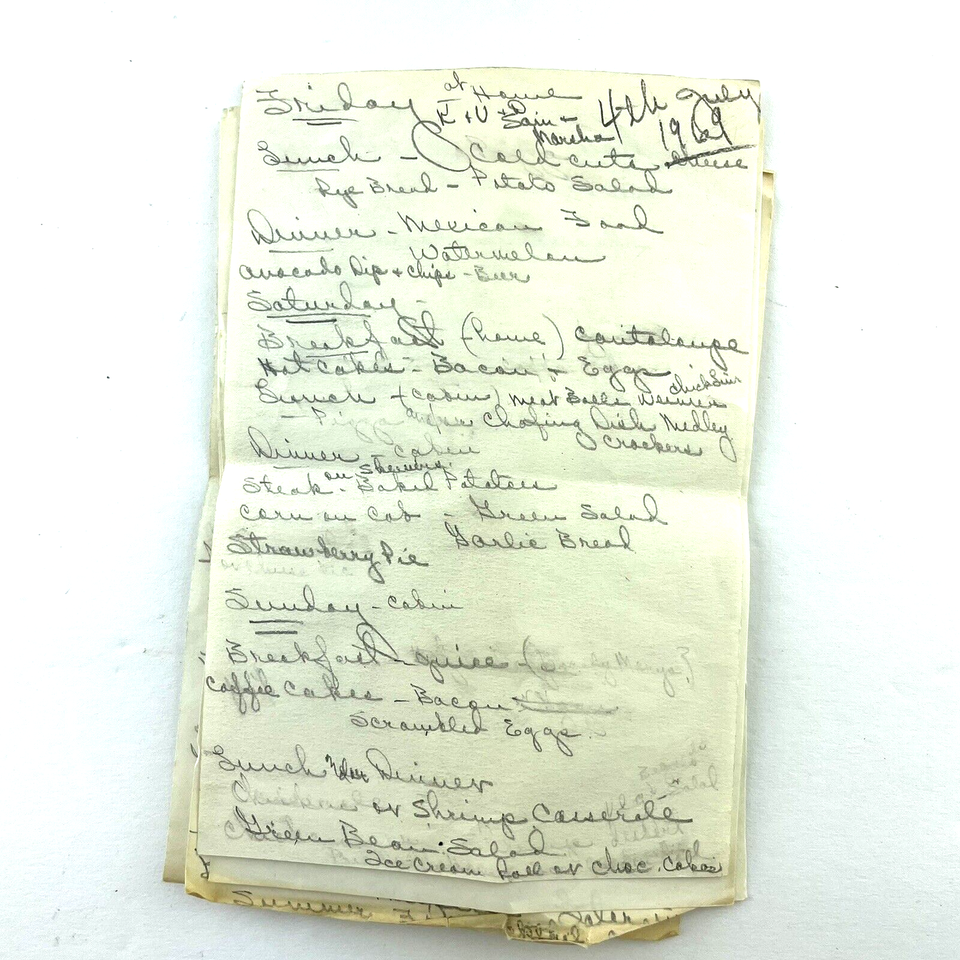 Friday at Home 4th July
K + U + D Sain + Marsha 1969
Lunch - Cold cuts, cheese
Rye Bread - Potato Salad
Dinner - Mexican Food
Watermelon
Avocado Dip + chips - Beer
Saturday -
Breakfast (home) cantaloupe
Hot Cakes - Bacon - Eggs
Lunch (cabin) Meat Balls Weiners
- Pizza Chafing Dish Medley
Crackers
Dinner - Cabin
Steak on Skewers - Baked Potatoes
Corn on Cob - Green Salad
Garlic Bread
Strawberry Pie
or Cheese Pie
Sunday - Cabin
Breakfast - juice
Coffee Cakes - Bacon
Scrambled Eggs
Lunch Dinner
or Shrimp Casserole
Green Bean Salad
Ice Cream Roll or Choc. Cake
Summer